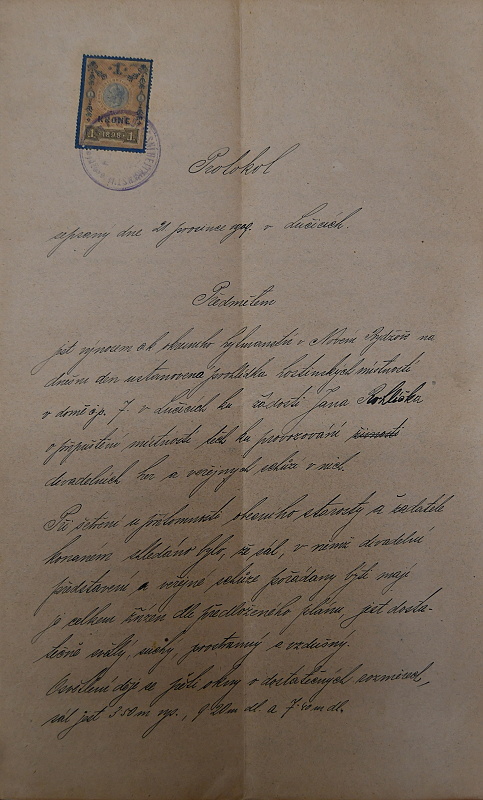 1
KRONE
1 1898 1
Protokol
sepsaný dne 21 prosince 1909. v Lučicích.
Předmětem
jest výnosem c k okresního hejtmanství v Novém Bydžově na
dnešní den ustanovená prohlídka hostinských místností
v domě čp. 7. v Lučicích ku žádosti Jana
o připuštění místností těch ku provozování živnosti
divadelních her a veřejných schůzí v nich.
Při šetření u přítomnosti obecního starosty a žadatele
konaném shledáno bylo, že sál, v němž divadelní
představení a veřejné schůze pořádány býti mají
je celkem zřízen dle předloženého plánu, jest dosta-
tečně světlý, suchý, prostranný a vzdušný.
Osvětlení děje se okny o dostatečných rozměrech,
sál jest 3·50 m vys., 9·20 m dl. a 7·40 m dl.